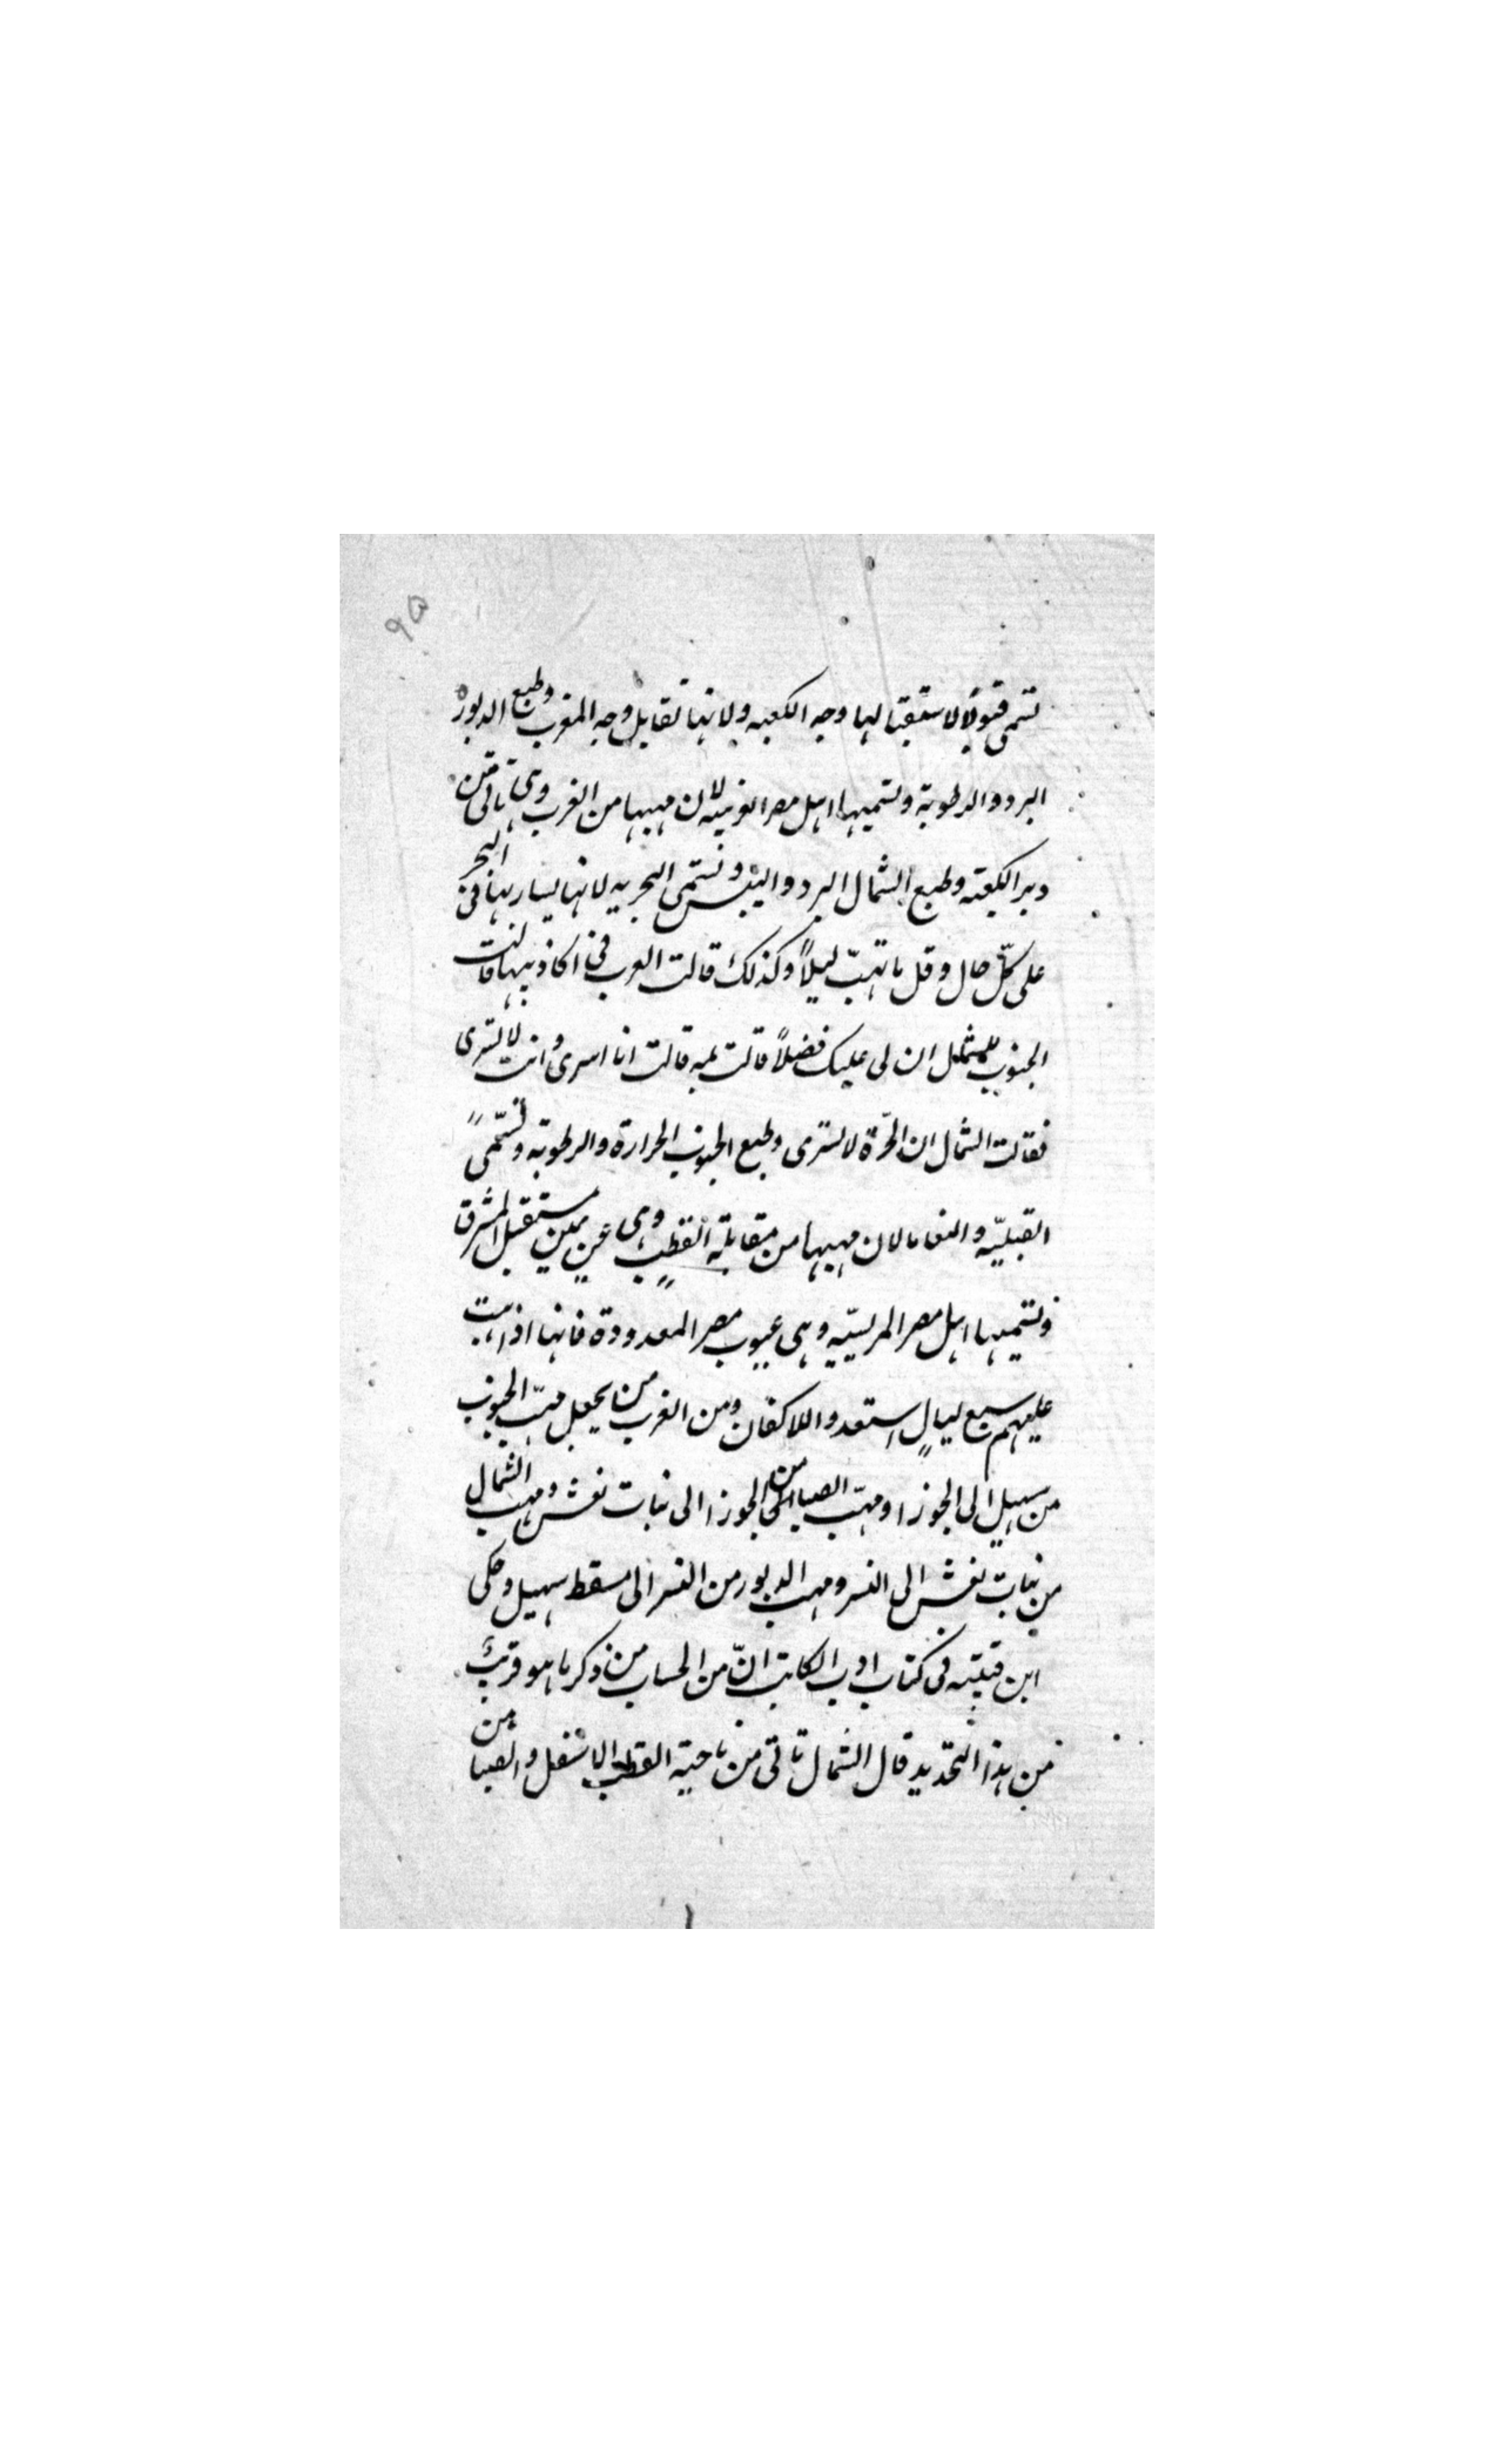 ٩۵
تسمى قبولًا لاستقبالها وجه الكعبه ولانها تقابل وجه المغرب وطبع الدبور
البرد والرطوبة وتسميها اهل مصر الغربيه لان مهبها من الغرب وهى تاتى من
دبر الكعبة وطبع الشمال البرد واليبس وتسمى البحريه لانها يسار بها فى البحر
على كلّ حال وقل ما تهبّ ليلًا وكذلك قالت العرب فى اكاذيبها قالت
الجنوب للشمال ان لى عليك فضلًا قالت لمه قالت انا اسرى وانت لا تسرى
فقالت الشمال ان الحرّة لا تسرى وطبع الجنوب الحرارة والرطوبة وتسمّى
القبليّه والنعاما لان مهبها من مقابلة القطب وهى عن يمين مستقبل المشرق
وتسميها اهل مصر المريسيّه وهى عيوب مصر المعدودة فانها اذا هبت
عليهم سبع ليالٍ استعدوا للاكفان ومن العرب من يجعل مهبّ الجنوب
من سهيل الى الجوزا ومهبّ الصبا من الجوزا الى نبات نعش ومهب الشمال
من نبات نعش الى النسر ومهب الدبور من النسر الى مسقط سهيل وحكى
ابن قتيبته فى كتاب ادب الكاتب انّ من الحساب من ذكر ما هو قريب
من هذا التحديد قال الشمال تاتى من ناحية القطب الاسفل والصبا من